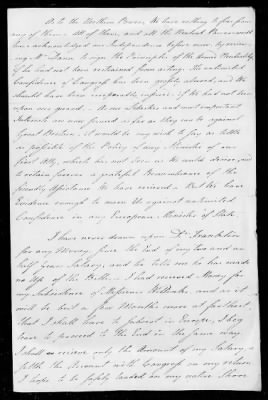 As to the Northern Powers, We have nothing to fear from
any of them. All of them, and all the Neutral Powers would
have acknowledged our Independence before now, by receiv-
ing Mr Dana to sign the Principles of the Armed Neutrality
if he had not been restrained from acting. The unlimited
Confidence of Congress has been grossly abused, and We
should have been irreparably injured, if We had not been
upon our guard. As our Liberties and most important
Interests are now secured as far as they can be against
Great Britain, it would be my wish to say as little
as possible of the Policy of any Minister of our
first Ally, which has not been as We could desire, and
to retain forever a grateful Remembrance of the
friendly Assistance We have received. But We have
Evidence enough to warn Us against unlimited
Confidence in any European Minister of State.
I have never drawn upon Dr Franklin
for any Money, since the End of my two and an
half Years Salary, and he tells me he has made
no Use of the Bills. I had received Money for
my Subsistence of Messieurs Willinks, and as it
will be but a few Months more at furthest,
that I shall have to subsist in Europe, I beg
leave to proceed to the End in the same way.
I shall receive only the Amount of my Salary, &
settle the Account with Congress on my return.
I hope to be safely landed on my native Shore